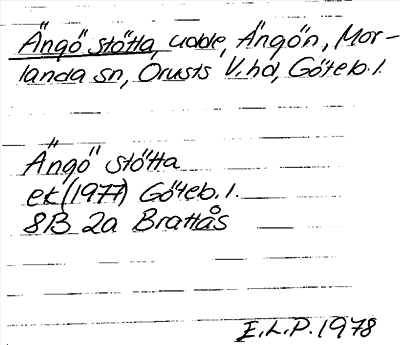 Ängö stötta, udde, Ängön, Mor-
landa sn, Orusts V.hd, Göteb.l.
Ängö stötta
ek (1977) Göteb.l.
8B 2a Brattås
E.L.P. 1978